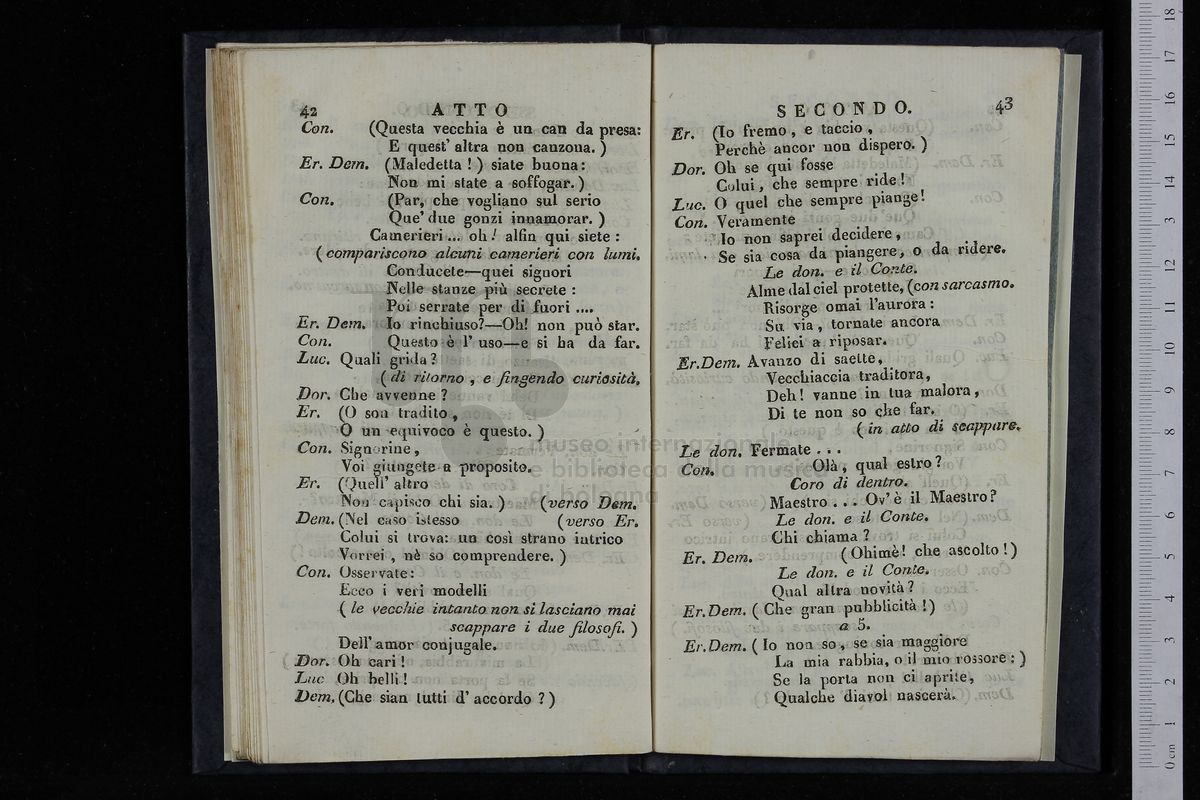 42 ATTO
Con. (Questa vecchia è un can da presa:
E quest' altra non canzona. )
Er. Dem. (Maledetta ! ) siate buona:
Non mi state a soffogar. )
Con. (Par, che vogliano sul serio
Que' due gonzi innamorar. )
Camerieri... oh! alfin qui siete :
( compariscono alcuni camerieri con lumi.
Conducete—quei signori
Nelle stanze più secrete :
Poi serrate per di fuori ....
Er. Dem. Io rinchiuso?—Oh! non può star.
Con. Questo è l' uso—e si ha da far.
Luc. Quali grida ?
( di ritorno , e fingendo curiosità.
Dor. Che avvenne ?
Er. (O son tradito ,
O un equivoco è questo. )
Con. Signorine,
Voi giungete a proposito.
Er. (Quell' altro
Non capisco chi sia. ) (verso Dem.
Dem. (Nel caso istesso (verso Er.
Colui si trova: un così strano intrico
Vorrei , nè so comprendere. )
Con. Osservate:
Ecco i veri modelli
( le vecchie intanto non si lasciano mai
scappare i due filosofi. )
Dell' amor conjugale.
Dor. Oh cari !
Luc Oh belli !
Dem. (Che sian tutti d' accordo ? )
SECONDO. 43
Er. (Io fremo , e taccio ,
Perchè ancor non dispero. )
Dor. Oh se qui fosse
Colui, che sempre ride !
Luc. O quel che sempre piange!
Con. Veramente
Io non saprei decidere,
Se sia cosa da piangere, o da ridere.
Le don. e il Conte.
Alme dal ciel protette, (con sarcasmo.
Risorge omai l'aurora :
Su via , tornate ancora
Felici a riposar.
Er.Dem. Avanzo di saette,
Vecchiaccia traditora,
Deh! vanne in tua malora,
Di te non so che far.
( in atto di scappare.
Le don. Fermate . . .
Con. Olà , qual estro ?
Coro di dentro.
Maestro . . . Ov' è il Maestro?
Le don. e il Conte.
Chi chiama ?
Er. Dem. (Ohimè! che ascolto !)
Le don. e il Conte.
Qual altra novità ?
Er.Dem. ( Che gran pubblicità !)
a 5.
Er.Dem. ( Io non so, se sia maggiore
La mia rabbia, o il mio rossore : )
Se la porta non ci aprite,
Qualche diavol nascerà.
museo internazionale
e biblioteca della musica
di bologna
0 cm 1 2 3 4 5 6 7 8 9 10 11 12 13 14 15 16 17 18